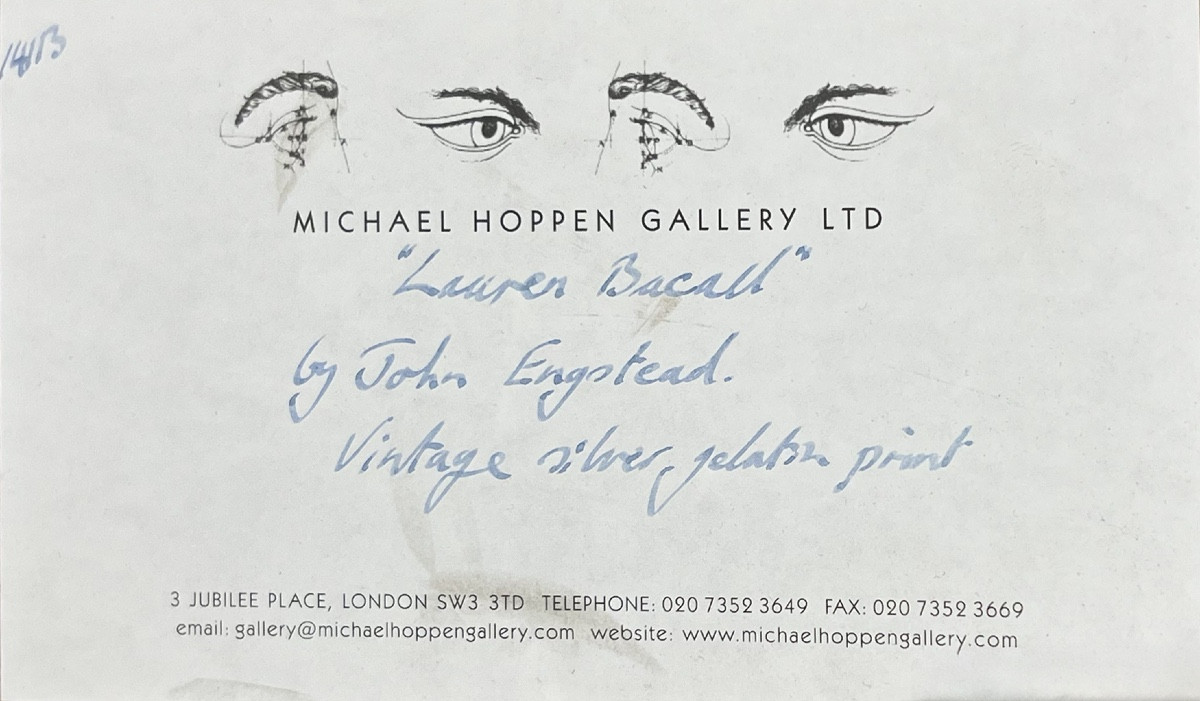 MICHAEL HOPPEN GALLERY LTD
"Lauren Bacall"
by John Engstead.
Vintage silver gelatin print
3 JUBILEE PLACE, LONDON SW3 3TD TELEPHONE: 020 7352 3649 FAX: 020 7352 3669
email: gallery@michaelhoppengallery.com website: www.michaelhoppengallery.com